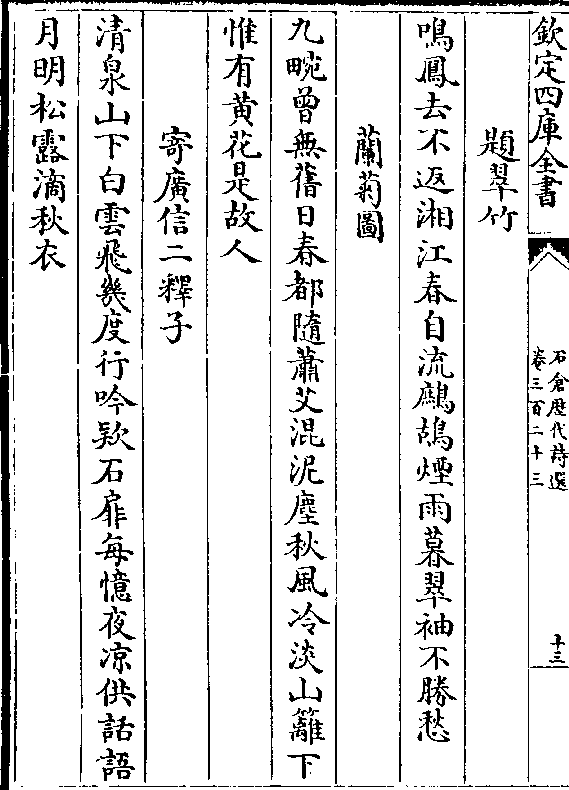 欽定四庫全書
石倉歷代詩選
卷三百二十三
十三
題翠竹
鳴鳳去不返湘江春自流鷓鴣煙雨暮翠袖不勝愁
蘭菊圖
九畹曾無舊日春都隨蕭艾混泥塵秋風冷淡山籬下
惟有黄花是故人
寄廣信二釋子
清泉山下白雲飛幾度行吟欵石扉每憶夜凉供話語
月明松露滴秋衣